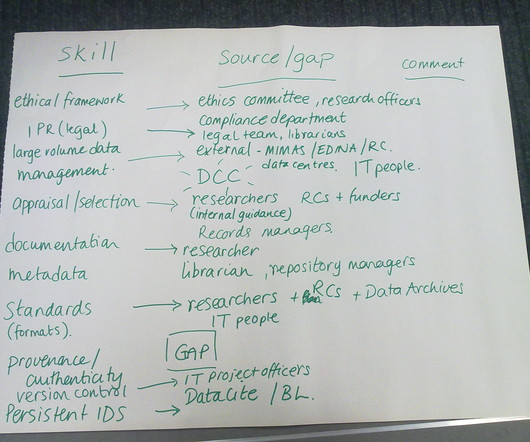 Skill Source/gap comment
ethical framework → ethics committee, research officers
compliance department
IPR (legal) → legal team, librarians
large volume data → external - MIMAS/EDINA/RC.
management. data centres. IT people.
DCC
Appraisal/selection → researchers RCs + funders
(internal guidance)
Records managers.
documentation → researcher
metadata librarian, repository managers
Standards → researchers + RCs + Data Archives
(formats). IT people
GAP
provenance/
authenticity
version control → IT Project officers
Persistent IDS → DataCite / BL.